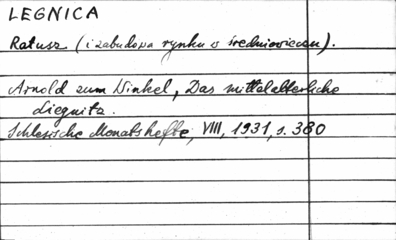 LEGNICA
Ratusz (i zabudowa rynku w średniowieczu).
Arnold zum Winkel, Das mittelalterliche
Liegnitz.
Schlesische Monatshefte, VIII, 1931, s. 380